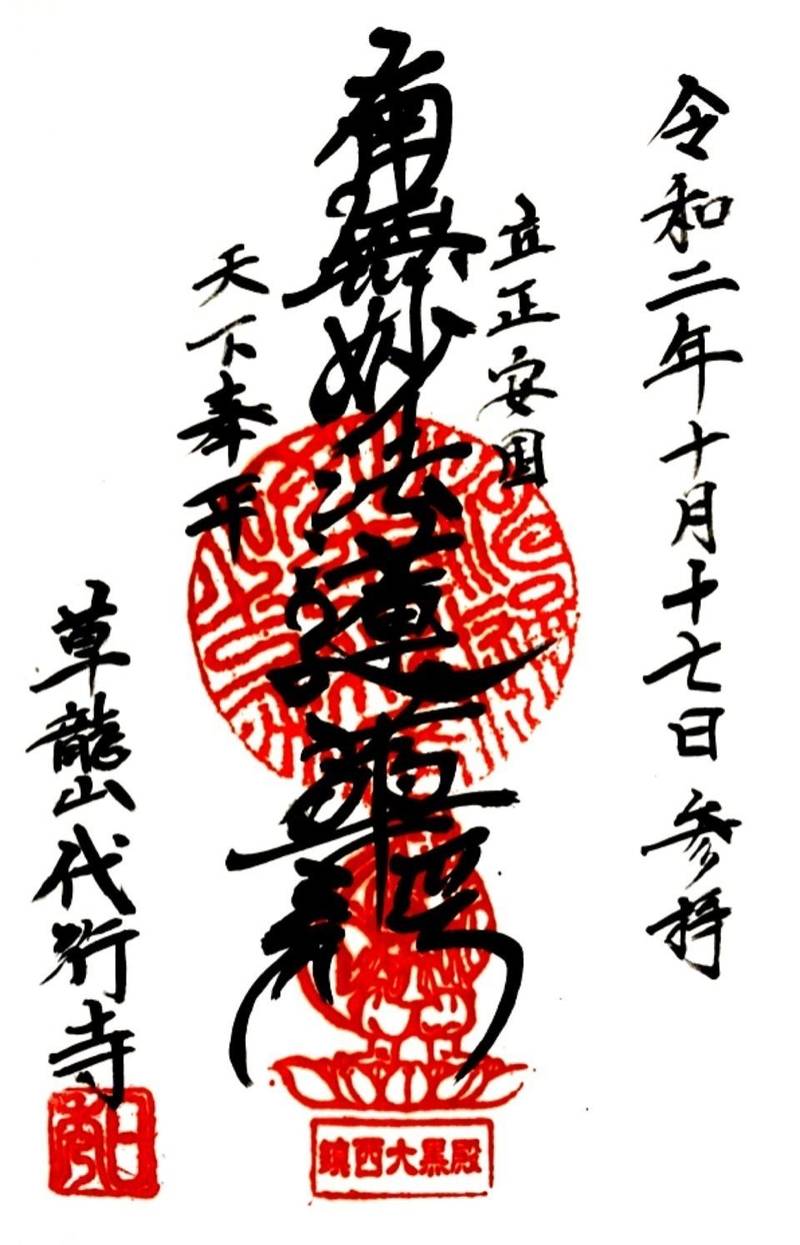 令和二年十月十七日 参拝
立正安国
南無妙法蓮華経
天下泰平
草龍山代行寺
鎮西大黒殿